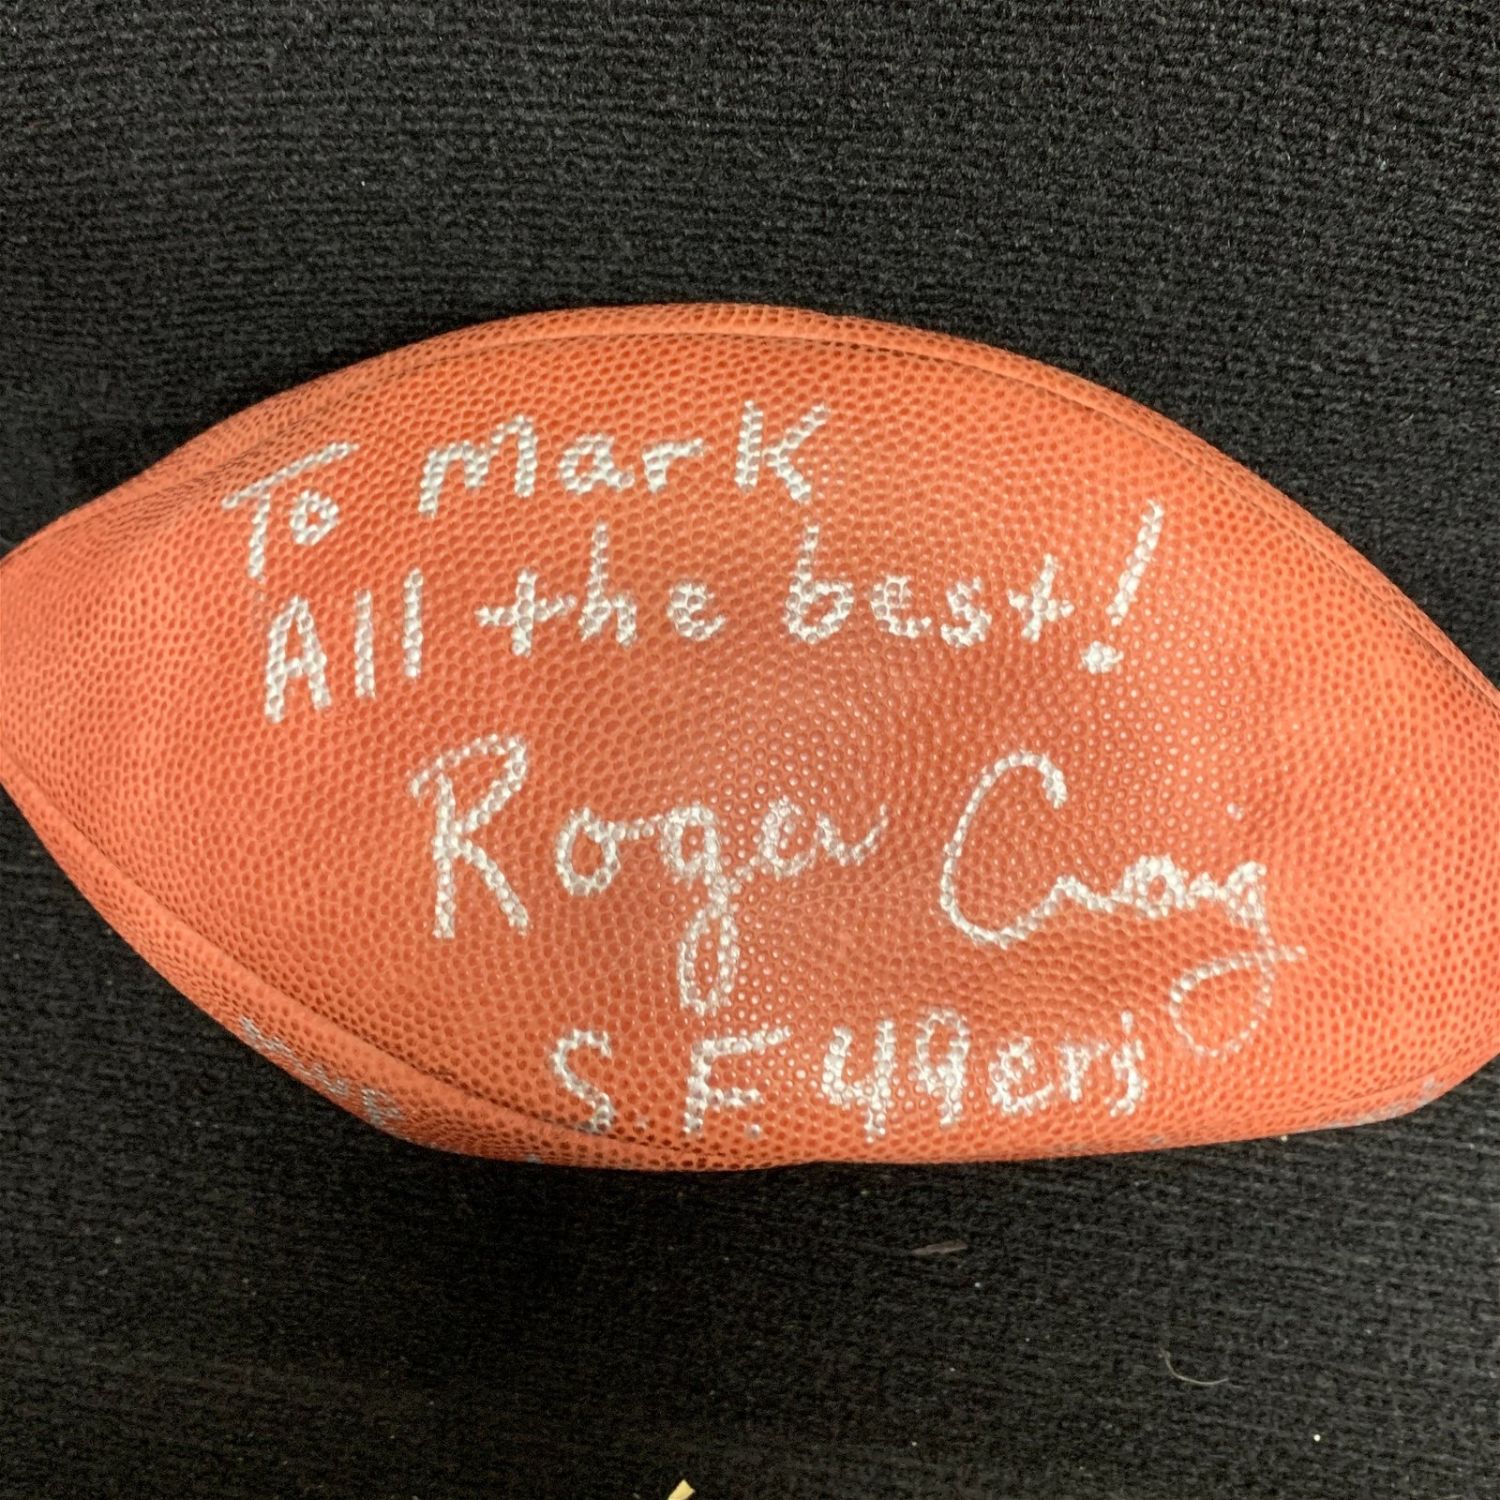 To Mark
All the best!
Roger Craig
S.F. 49ers'